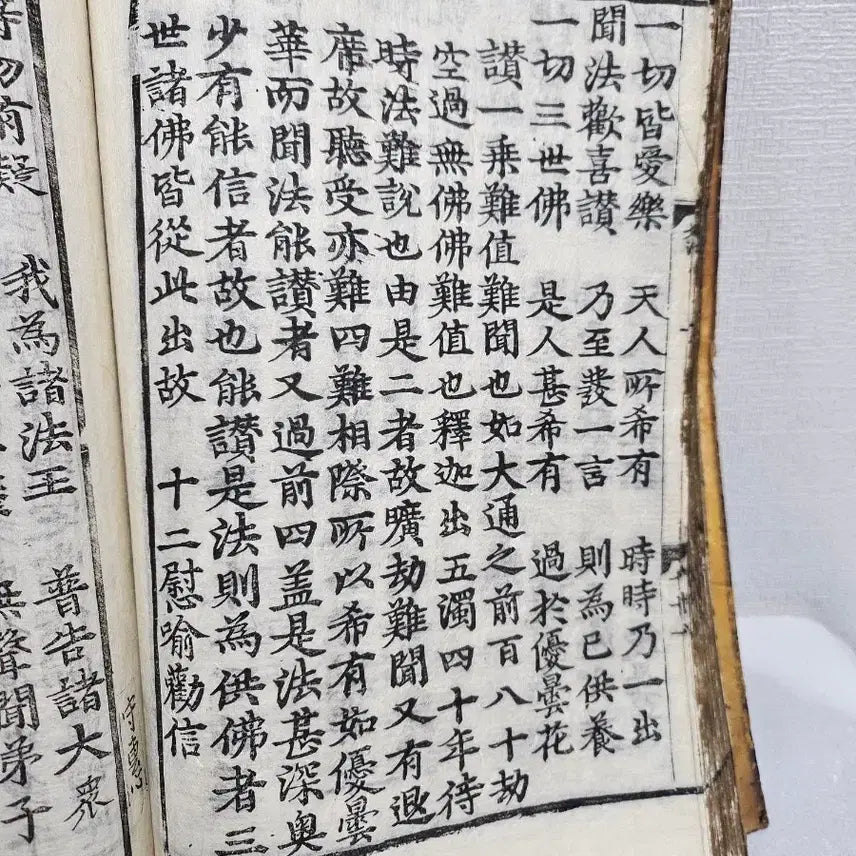 一切皆愛樂 天人所希有 時時乃一出
聞法歡喜讃 乃至發一言 則為已供養
一切三世佛 是人甚希有 過於優曇花
讃一乘難值難聞也如大通之前百八十劫
空過無佛佛難值也釋迦出五濁四十年待
時法難說也由是二者故曠劫難聞又有退
席故聽受亦難四難相際所以希有如優曇
華而聞法能讃者又過前四盖是法甚深奧
少有能信者故也能讃是法則為供佛者三
世諸佛皆從此出故 十二慰喻勸信
我為諸法王 普告諸大衆
聲聞弟子